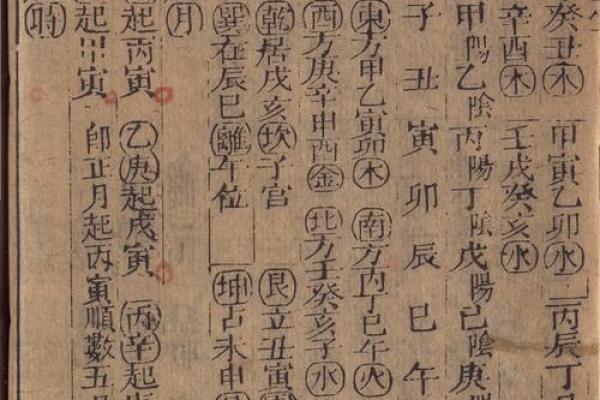 癸丑木 甲寅乙卯水 丙辰丁
辛酉木 壬戌癸亥水
甲陽乙陰丙陽丁陰戊陽己陰庚
子丑寅卯辰巳午
東方甲乙寅卯木 南方丙丁巳午火
西方庚辛申酉金 北方壬癸亥子水
乾居戌亥坎子宮 艮立丑寅
巽在辰巳離午位 坤占未申
月
起丙寅 乙庚起戊寅 丙辛起
起甲寅 卽正月起丙寅順數五
時